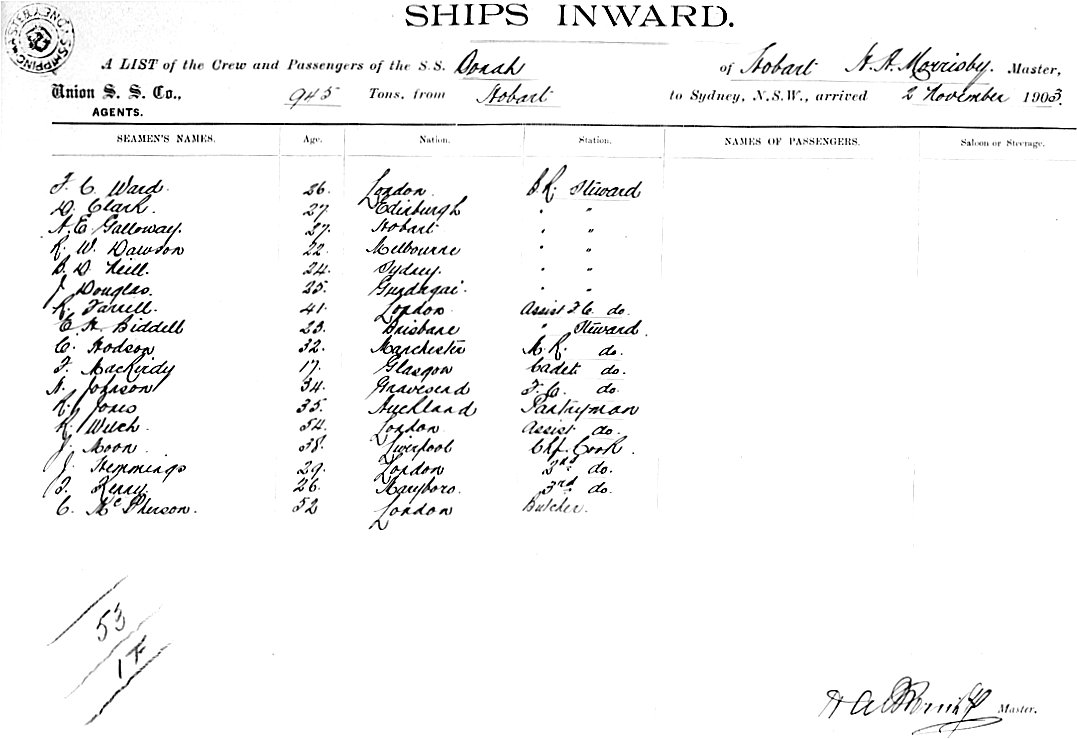 SHIPPING MASTER SYDNEY
SHIPS INWARD.
A LIST of the Crew and Passengers of the S.S. Oonah of Hobart H. A. Morrisby. Master,
Union S. S. Co., 945 Tons, from Hobart to Sydney, N.S.W., arrived 2 November 1903.
AGENTS.
SEAMEN'S NAMES. Age. Nation. Station. NAMES OF PASSENGERS. Saloon or Steerage.
F. C. Ward. 26. London. B. R. Steward
D. Clark. 27. Edinburgh " "
A. E. Galloway. 27. Hobart " "
R. W. Dawson 22. Melbourne " "
B. D. Neill. 24. Sydney. " "
J. Douglas. 25. Gundagai. " "
R. Farrell. 41. London. Assist F. C. do.
E. H. Biddell 23. Brisbane " Steward.
C. Hodson 32. Manchester M. R. do.
F. MacKirdy 17. Glasgow Cadet do.
A. Johnson 34. Gravesend F. C. do.
R. Jones 35. Auckland Pantryman
R. Welch. 54. London Assist do.
J. Moon. 38. Liverpool Chf. Cook.
J. Hemmings 29. London 2nd do.
F. Kenny. 26. Maryboro. 3rd do.
C. McPherson. 52 London Butcher.
53
1 F
Master.